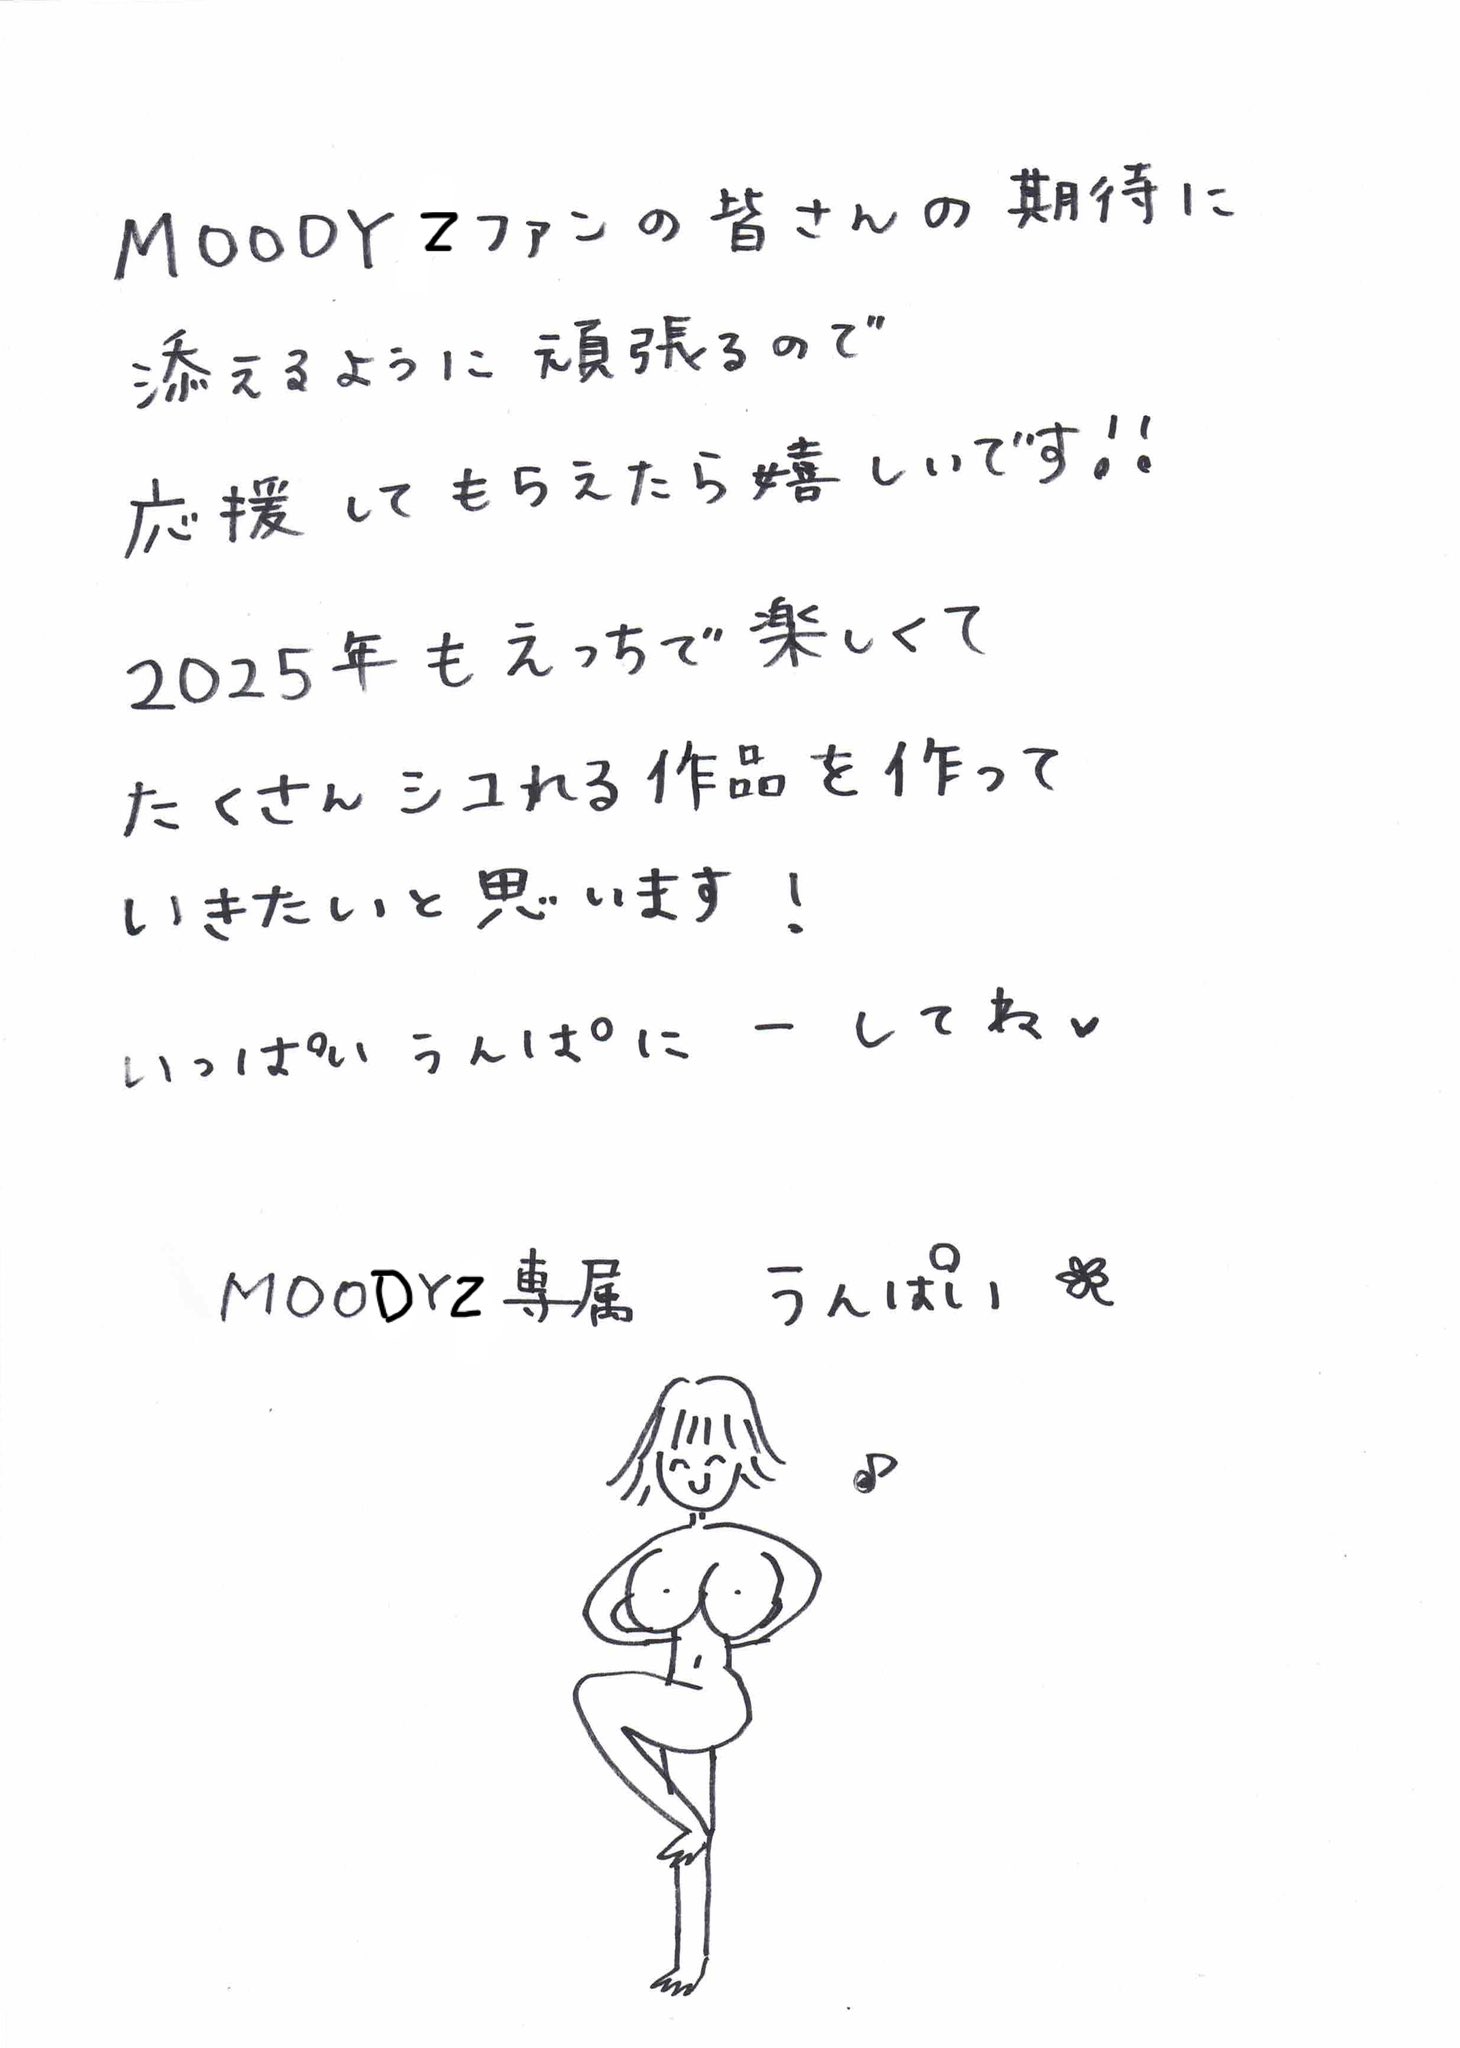 MOODYZファンの皆さんの期待に
添えるように頑張るので
応援してもらえたら嬉しいです!!
2025年もえっちで楽しくて
たくさんシコれる作品を作って
いきたいと思います!
いっぱいうんぱにーしてね♥
MOODYZ専属 うんぱい